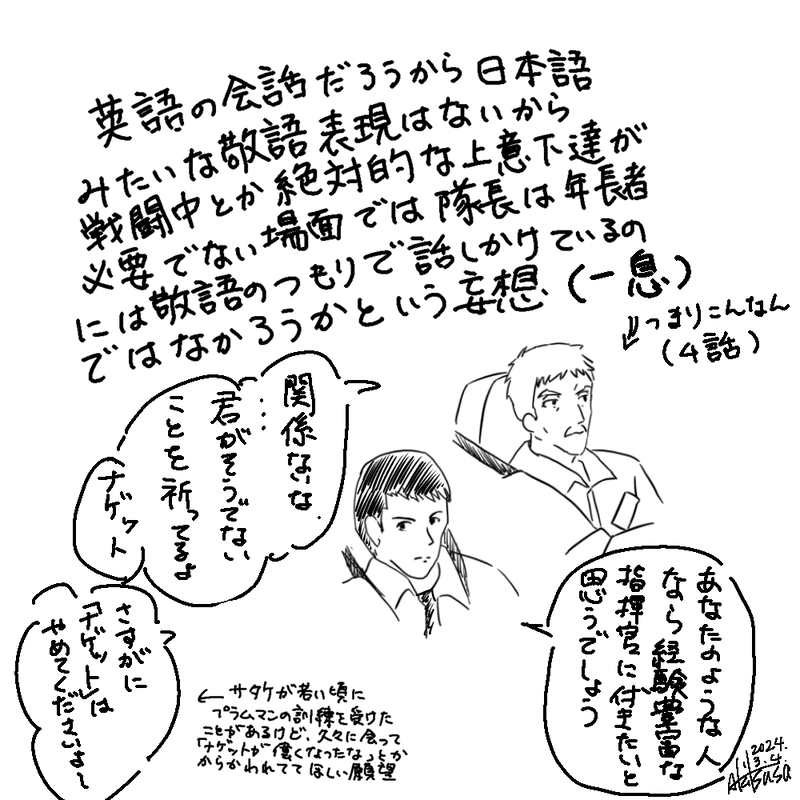 英語の会話だろうから日本語
みたいな敬語表現はないから
戦闘中とか絶対的な上意下達が
必要でない場面では隊長は年長者
には敬語のつもりで話しかけているの
ではなかろうかという妄想 (一息)
つまりこんなん
(4話)
関係ないな
…君がそうでない
ことを祈ってるよ
ナゲット
さすがに
「ナゲット」は
やめてくださいよ〜
あなたのような人
なら経験豊富な
指揮官に付きたいと
思うでしょう
←サタケが若い頃に
プラムマンの訓練を受けた
ことがあるけど、久々に会って
「ナゲットが偉くなったな」とか
からかわれてて ほしい願望
2024.